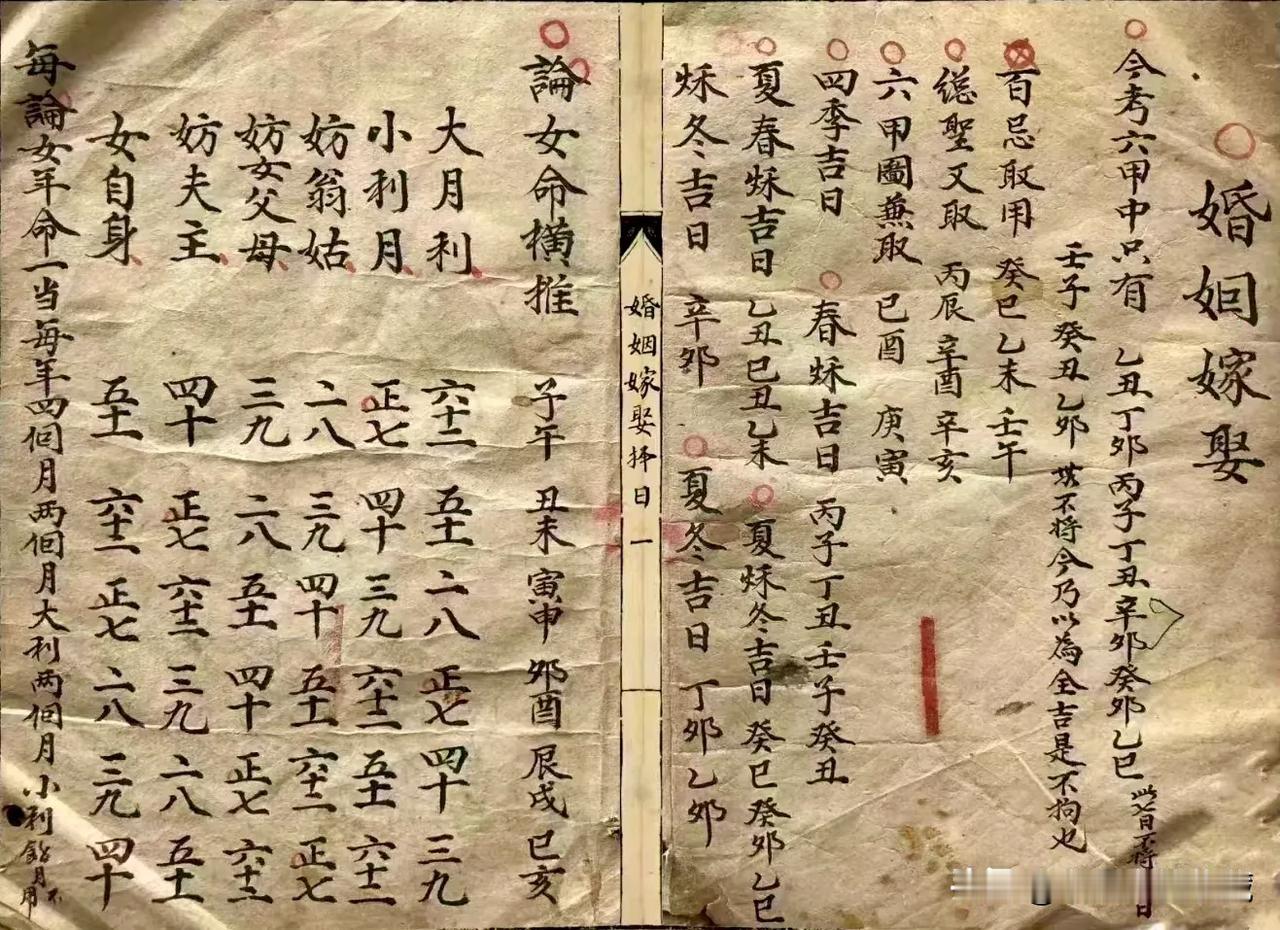 婚姻嫁娶
今考六甲中只有 乙丑丁卯丙子丁丑辛卯癸卯乙巳
壬子癸丑乙卯 不將今乃以為全吉是不拘也
百忌取用 癸巳乙未壬午
總聖又取 丙辰辛酉辛亥
六甲圖兼取 己酉 庚寅
四季吉日 春秌吉日 丙子丁丑壬子癸丑
夏春秌吉日 乙丑巳丑乙未 夏秌冬吉日 癸巳癸卯乙巳
秌冬吉日 辛卯 夏冬吉日 丁卯乙卯
婚姻嫁娶擇日 一
論女命橫推 子午 丑未 寅申 卯酉 辰戌 巳亥
大月利 六十二 五十一 二八 正七 四十 三九
小利月 正七 四十 三九 六十二 五十一 六十二
妨翁姑 二八 三九 四十 五十一 六十二 正七
妨女父母 三九 二八 五十一 四十 正七 六十二
妨夫主 四十 正七 六十二 三九 二八 五十一
女自身 五十一 六十二 正七 二八 三九 四十
每論女年命一当每年四個月两個月大利两個月小利餘月不用